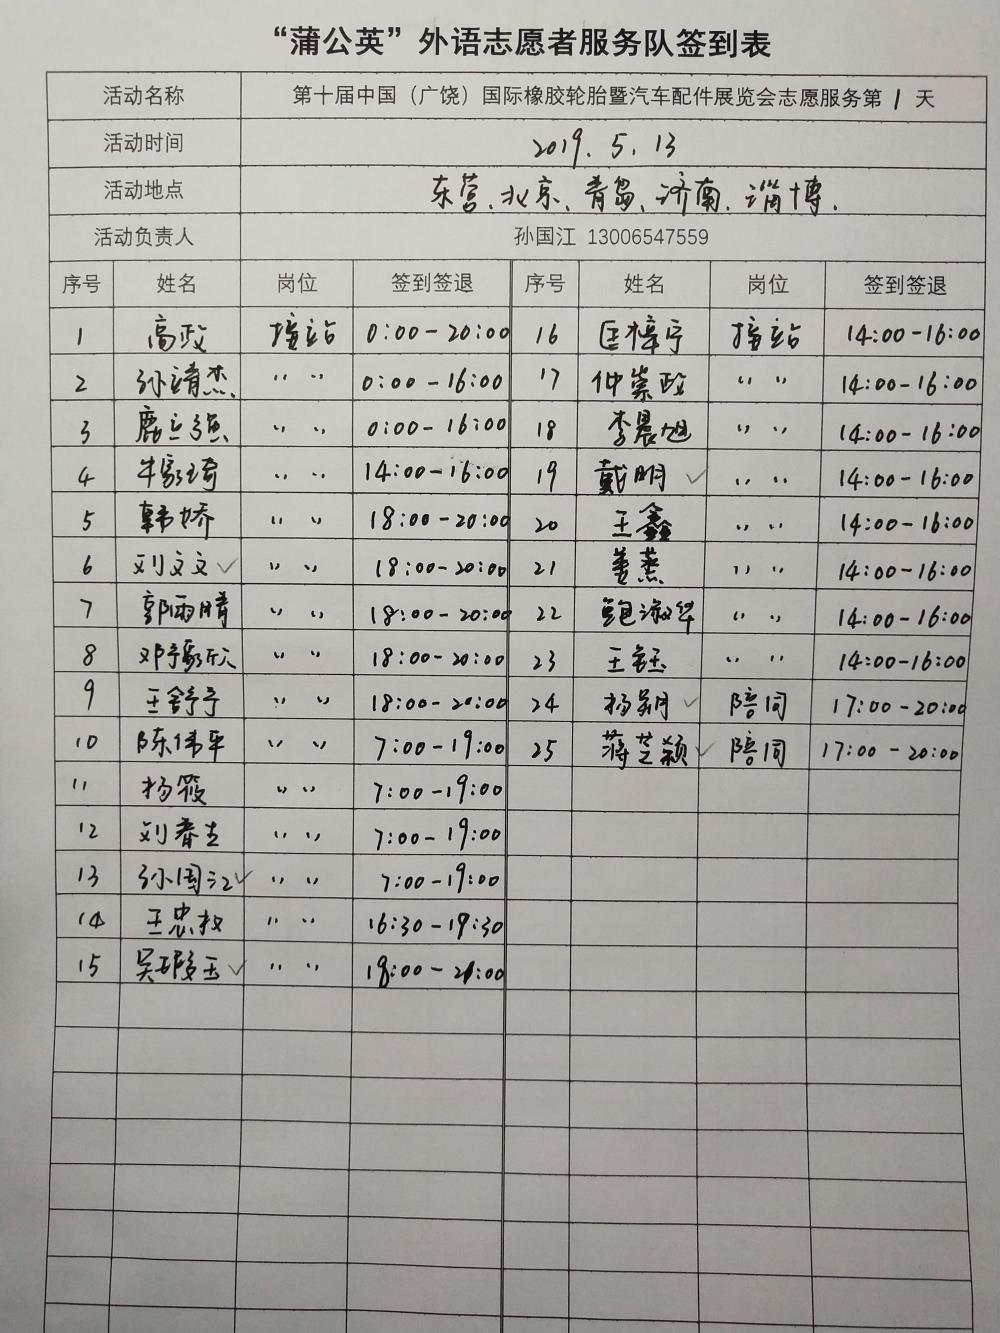 “蒲公英”外语志愿者服务队签到表
活动名称 第十届中国（广饶）国际橡胶轮胎暨汽车配件展览会志愿服务第1天
活动时间 2019.5.13
活动地点 东营、北京、青岛、济南、淄博.
活动负责人 孙国江 13006547559
序号 姓名 岗位 签到签退 序号 姓名 岗位 签到签退
1 高政 接站 0:00-20:00 16 匡樟宁 接站 14:00-16:00
2 孙靖杰 〃 〃 0:00-16:00 17 仲崇政 〃 〃 14:00-16:00
3 鹿立强 〃 〃 0:00-16:00 18 李晨旭 〃 〃 14:00-16:00
4 〃 〃 14:00-16:00 19 戴明 ✓ 〃 〃 14:00-16:00
5 韩娇 〃 〃 18:00-20:00 20 王鑫 〃 〃 14:00-16:00
6 刘文文 ✓ 〃 〃 18:00-20:00 21 姜燕 〃 〃 14:00-16:00
7 郭雨晴 〃 〃 18:00-20:00 22 鲍淑华 〃 〃 14:00-16:00
8 〃 〃 18:00-20:00 23 王钰 〃 〃 14:00-16:00
9 王舒宁 〃 〃 18:00-20:00 24 ✓ 陪同 17:00-20:00
10 陈伟平 〃 〃 7:00-19:00 25 蒋芝颖 ✓ 陪同 17:00-20:00
11 杨筱 〃 〃 7:00-19:00
12 刘春志 〃 〃 7:00-19:00
13 孙国江 ✓ 〃 〃 7:00-19:00
14 王忠权 〃 〃 16:30-19:30
15 ✓ 〃 〃 18:00-21:00